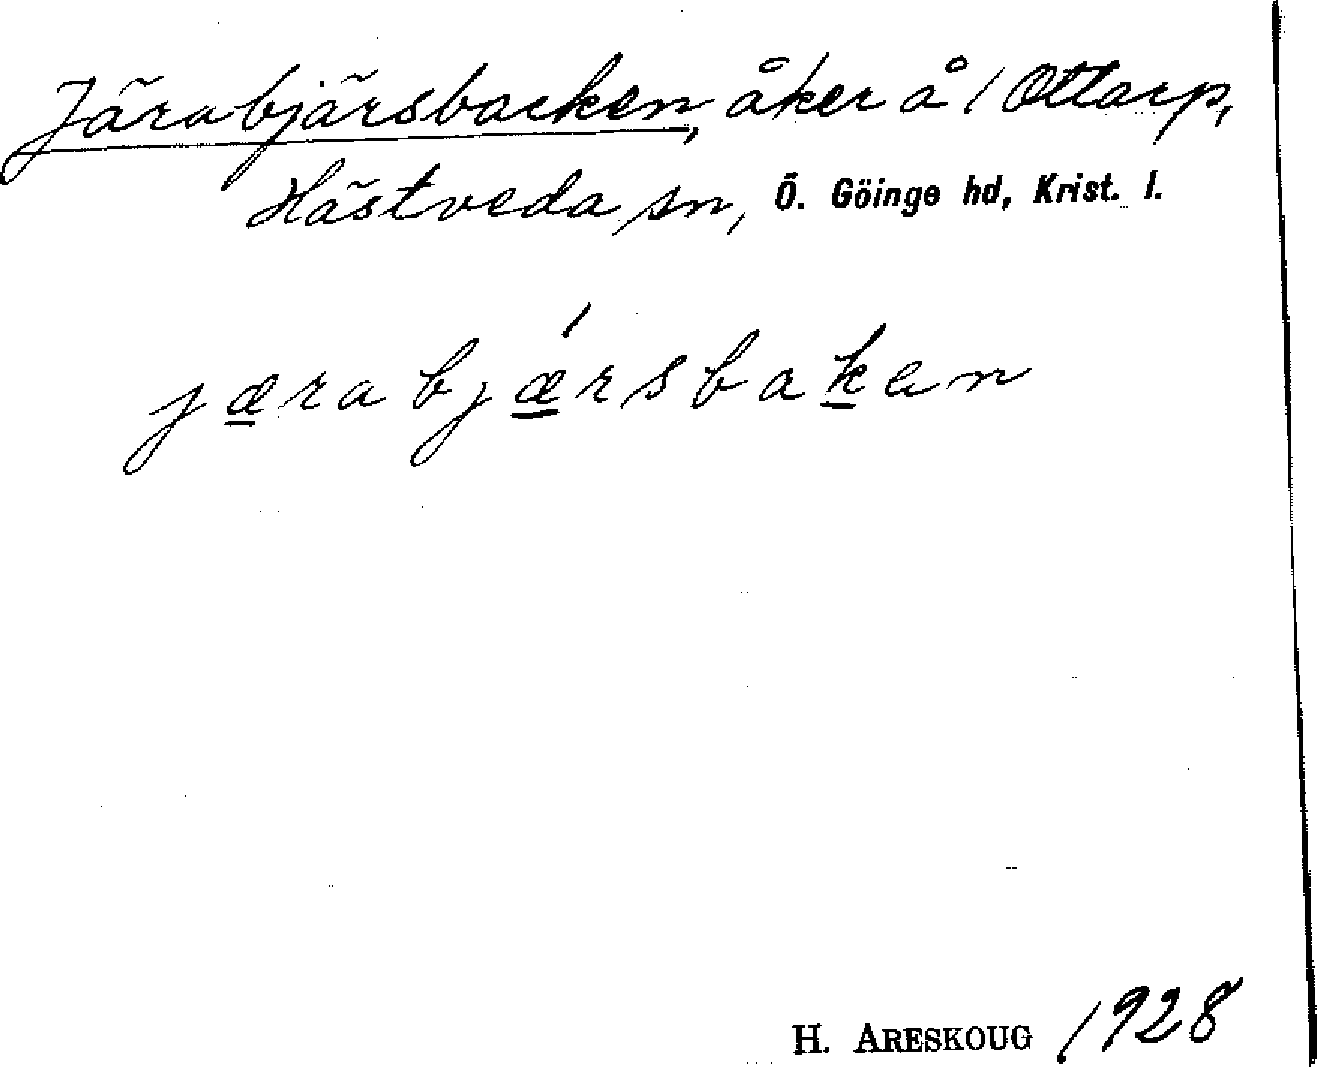 Järabjärsbacken, åker å 1 Ottarp,
Hästveda sn, Ö. Göinge hd, Krist. l.
jærabjǽrsbaken
H. ARESKOUG 1928